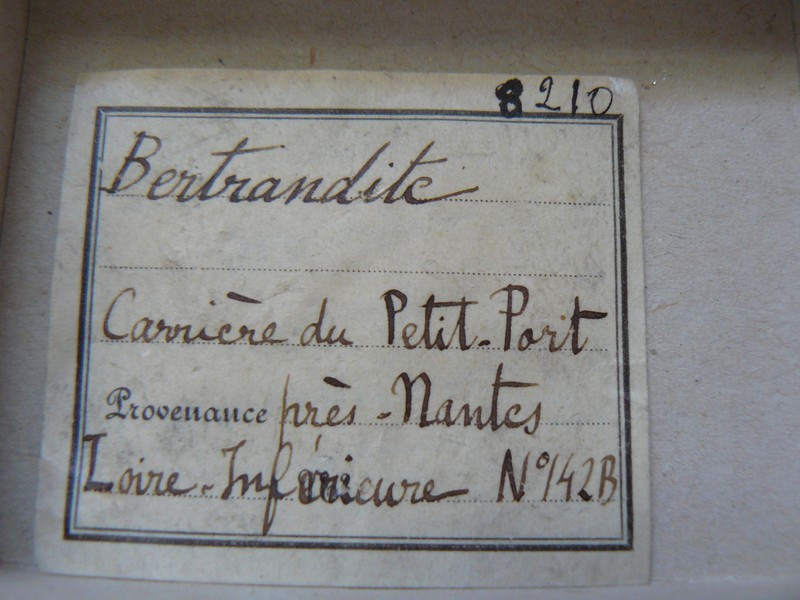 8210
Bertrandite
Carrière du Petit-Port
Provenance près-Nantes
Loire-Inférieure N°142B